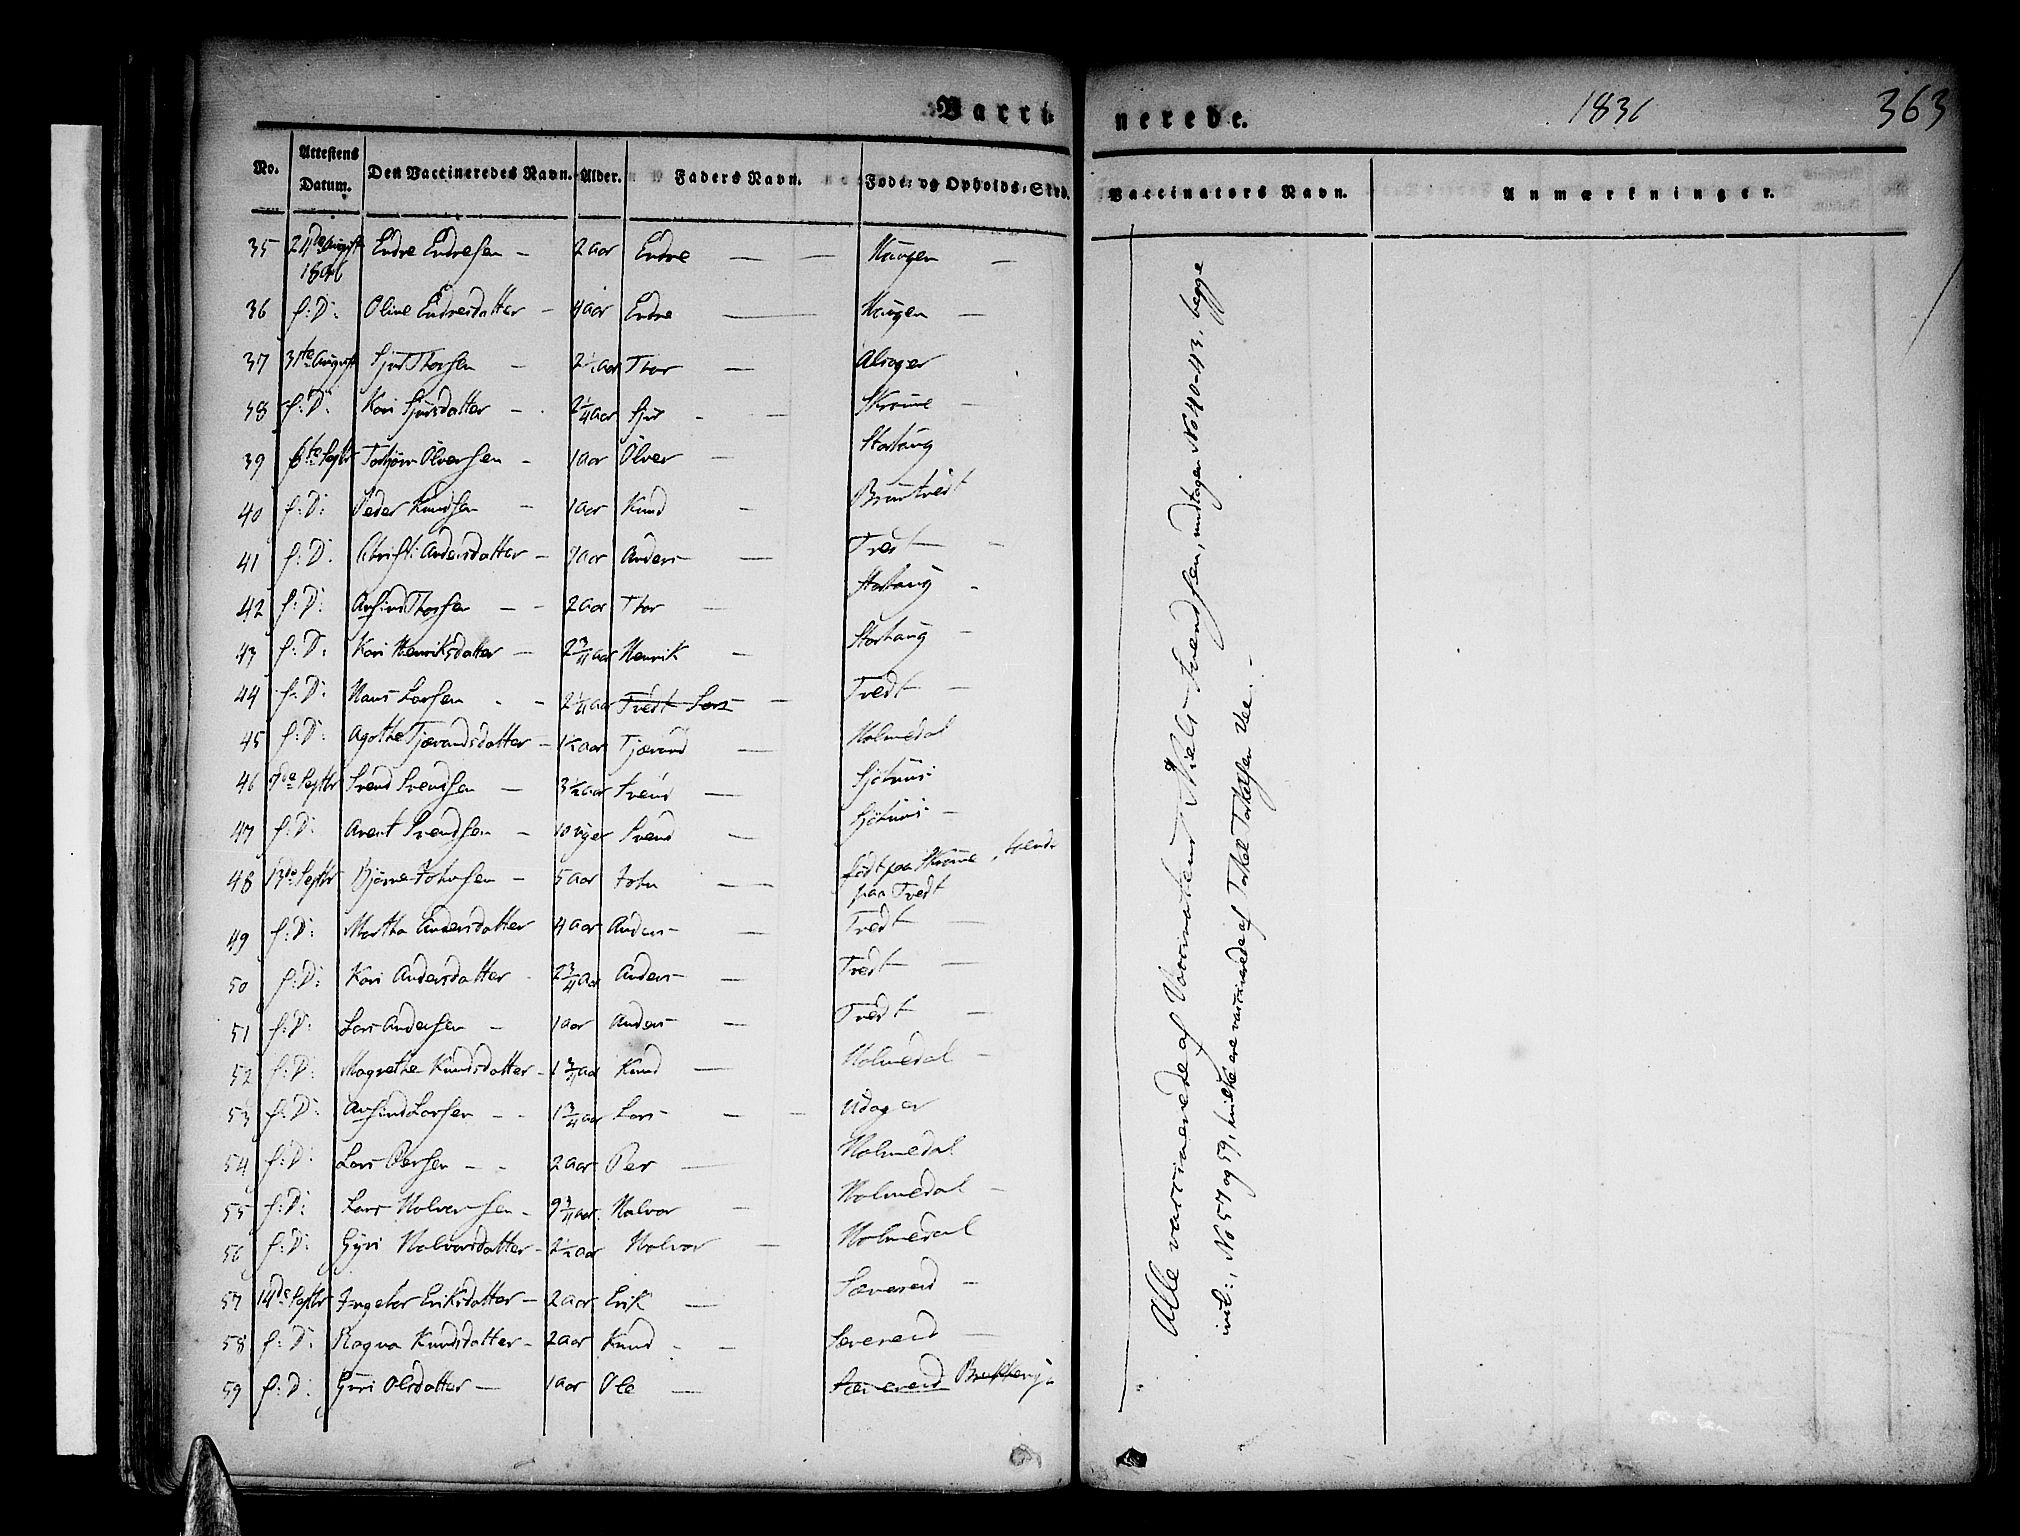 Vacci-nerede. 1836 363
No. Attestens Datum. Den Vaccineredes Navn. Alder. Faders Navn. Føde- og Opholds-Sted. Vaccinators Navn. Anmærkninger.
35 24de August 1836 Endre Endresen - 2 aar Endre — — Haugen —
36 f: D: Oline Endresdatter - 4 aar Endre — Haugen —
37 31te August Sjur Thorsen - 2½ aar Thor — Alsager
38 f: D: Kari Sjursdatter - 2¼ aar Sjur - — Skromme —
39 6te Septbr Torbjørn Ølversen - 1 aar Ølver — Storhaug
40 f: D: Peder Knudsen - 1 aar Knud — Bruntvedt
41 f: D: Christi Andersdatter - 1 aar Anders — Tvedt —
42 f: D: Anfind Thorsen - - 2 aar Thor — Storhaug -
43 f: D: Kari Henriksdatter - 2¾ aar Henrik — Storhaug —
44 f: D: Hans Larsen - - 2¼ aar Tvedt Lars — Tvedt —
45 f: D: Agothe Tjærandsdatter - 1½ aar Tjærand — Holmedal
46 7de Septbr Svend Svendsen - 3½ aar Svend — Sjøhuus:
47 f: D: Arent Svendsen - 10 uger Svend — Sjøhuus -
48 13de Septbr Bjørne Johnsen - 5 aar John — født paa Skromme, tjende
paa Tvedt
49 f: D: Martha Andersdatter 4 aar Anders — Tvedt —
50 f: D: Kari Andersdatter - 2¾ aar Anders — Tvedt —
51 f: D: Lars Andersen - 1 aar Anders — Tvedt —
52 f: D: Magrethe Knudsdatter - 1¾ aar Knud — Holmedal -
53 f: D: Anfind Larsen - - 1¾ aar Lars — - Udager
54 f: D: Lars Persen - - 2 aar Per — Holmedal
55 f: D: Lars Halvorsen - 9¾ aar Halvor — Holmedal -
56 f: D: Gyri Halvorsdatter - 2½ aar Halvor — Holmedal
57 14de Septbr Ingebor Eriksdatter - 2 aar Erik — Sævereid —
58 f: D: Ragna Knudsdatter - 2 aar Knud - — Sævereid —
59 f: D: Guri Olsdatter — 1 aar Ole — Sævereid
Alle vaccinerede af Vaccinateur Niels Svendsen, undtagen No 40-43, begge
incl:, No 57 og 59, hvilke ere vaccinerede af Torkel Torkelsen Vee. -